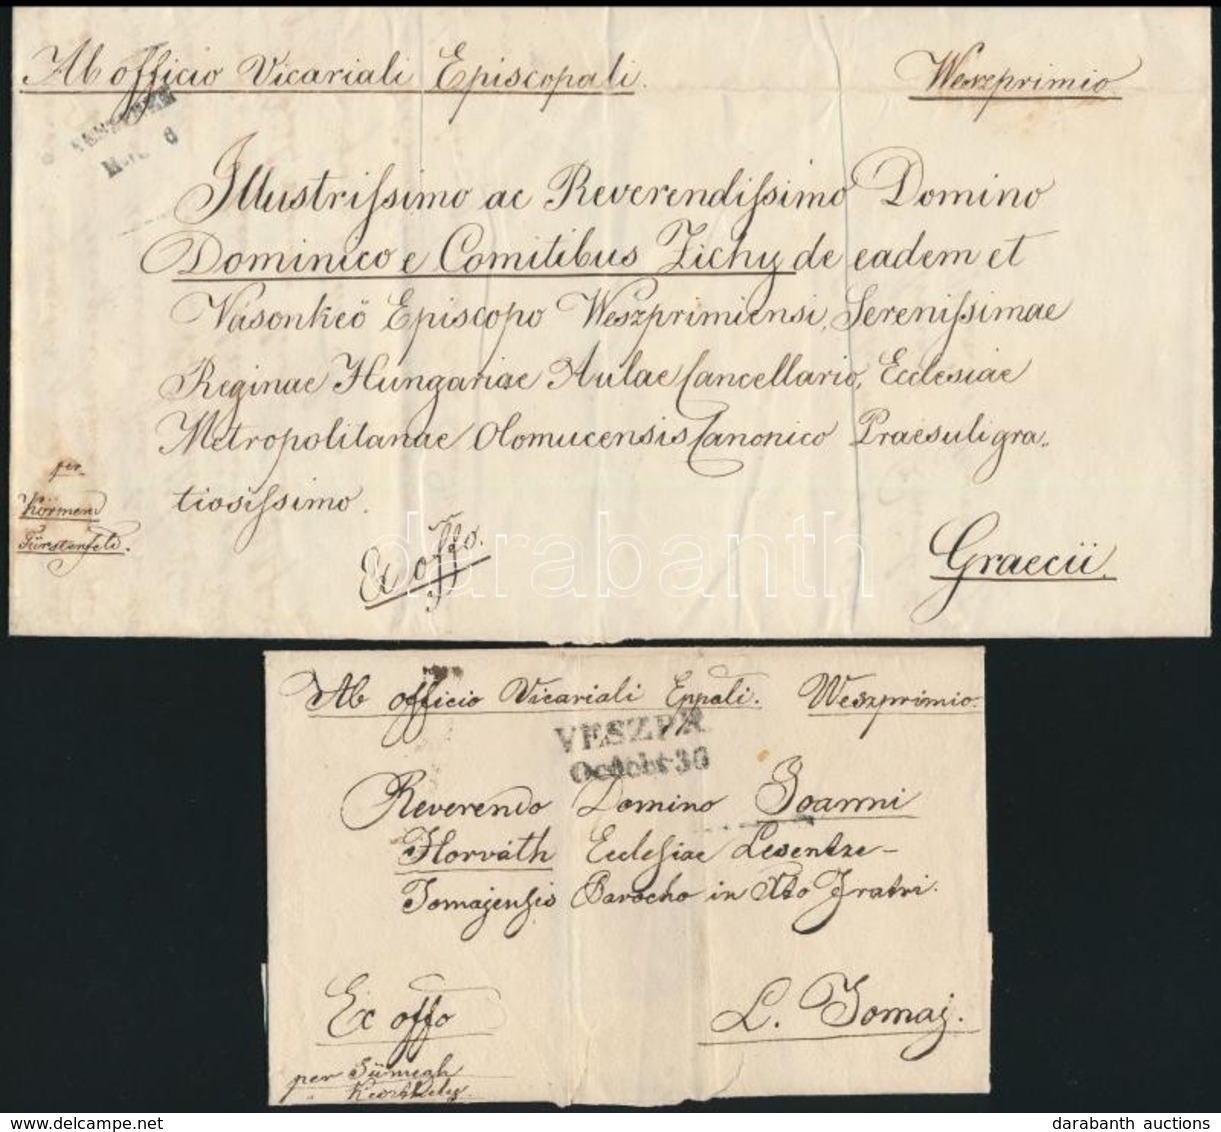 Ab officio Vicariali Episcopali. Weszprimio
6
Illustrissimo ac Reverendissimo Domino
Dominico e Comitibus Zichy de eadem et
Vásonkeö Episcopo Weszprimiensi, Serenissimae
Reginae Hungariae Aulae Cancellario, Ecclesiae
Metropolitanae Olomucensis Canonico Praesuli gra„
tiosissimo.
per
Körmend
Fürstenfeld.
Ex offo.
Graecii.
darabanth
Ab officio Vicariali Eppali. Weszprimio.
VESZPR
Octobr 30
Reverendo Domino Joanni
Horváth Ecclesiae Lesentze-
Tomajensis Parocho in Xto Fratri.
Ex offo
L. Tomaj.
per Sümegh
" Keszthely
darabanth auctions